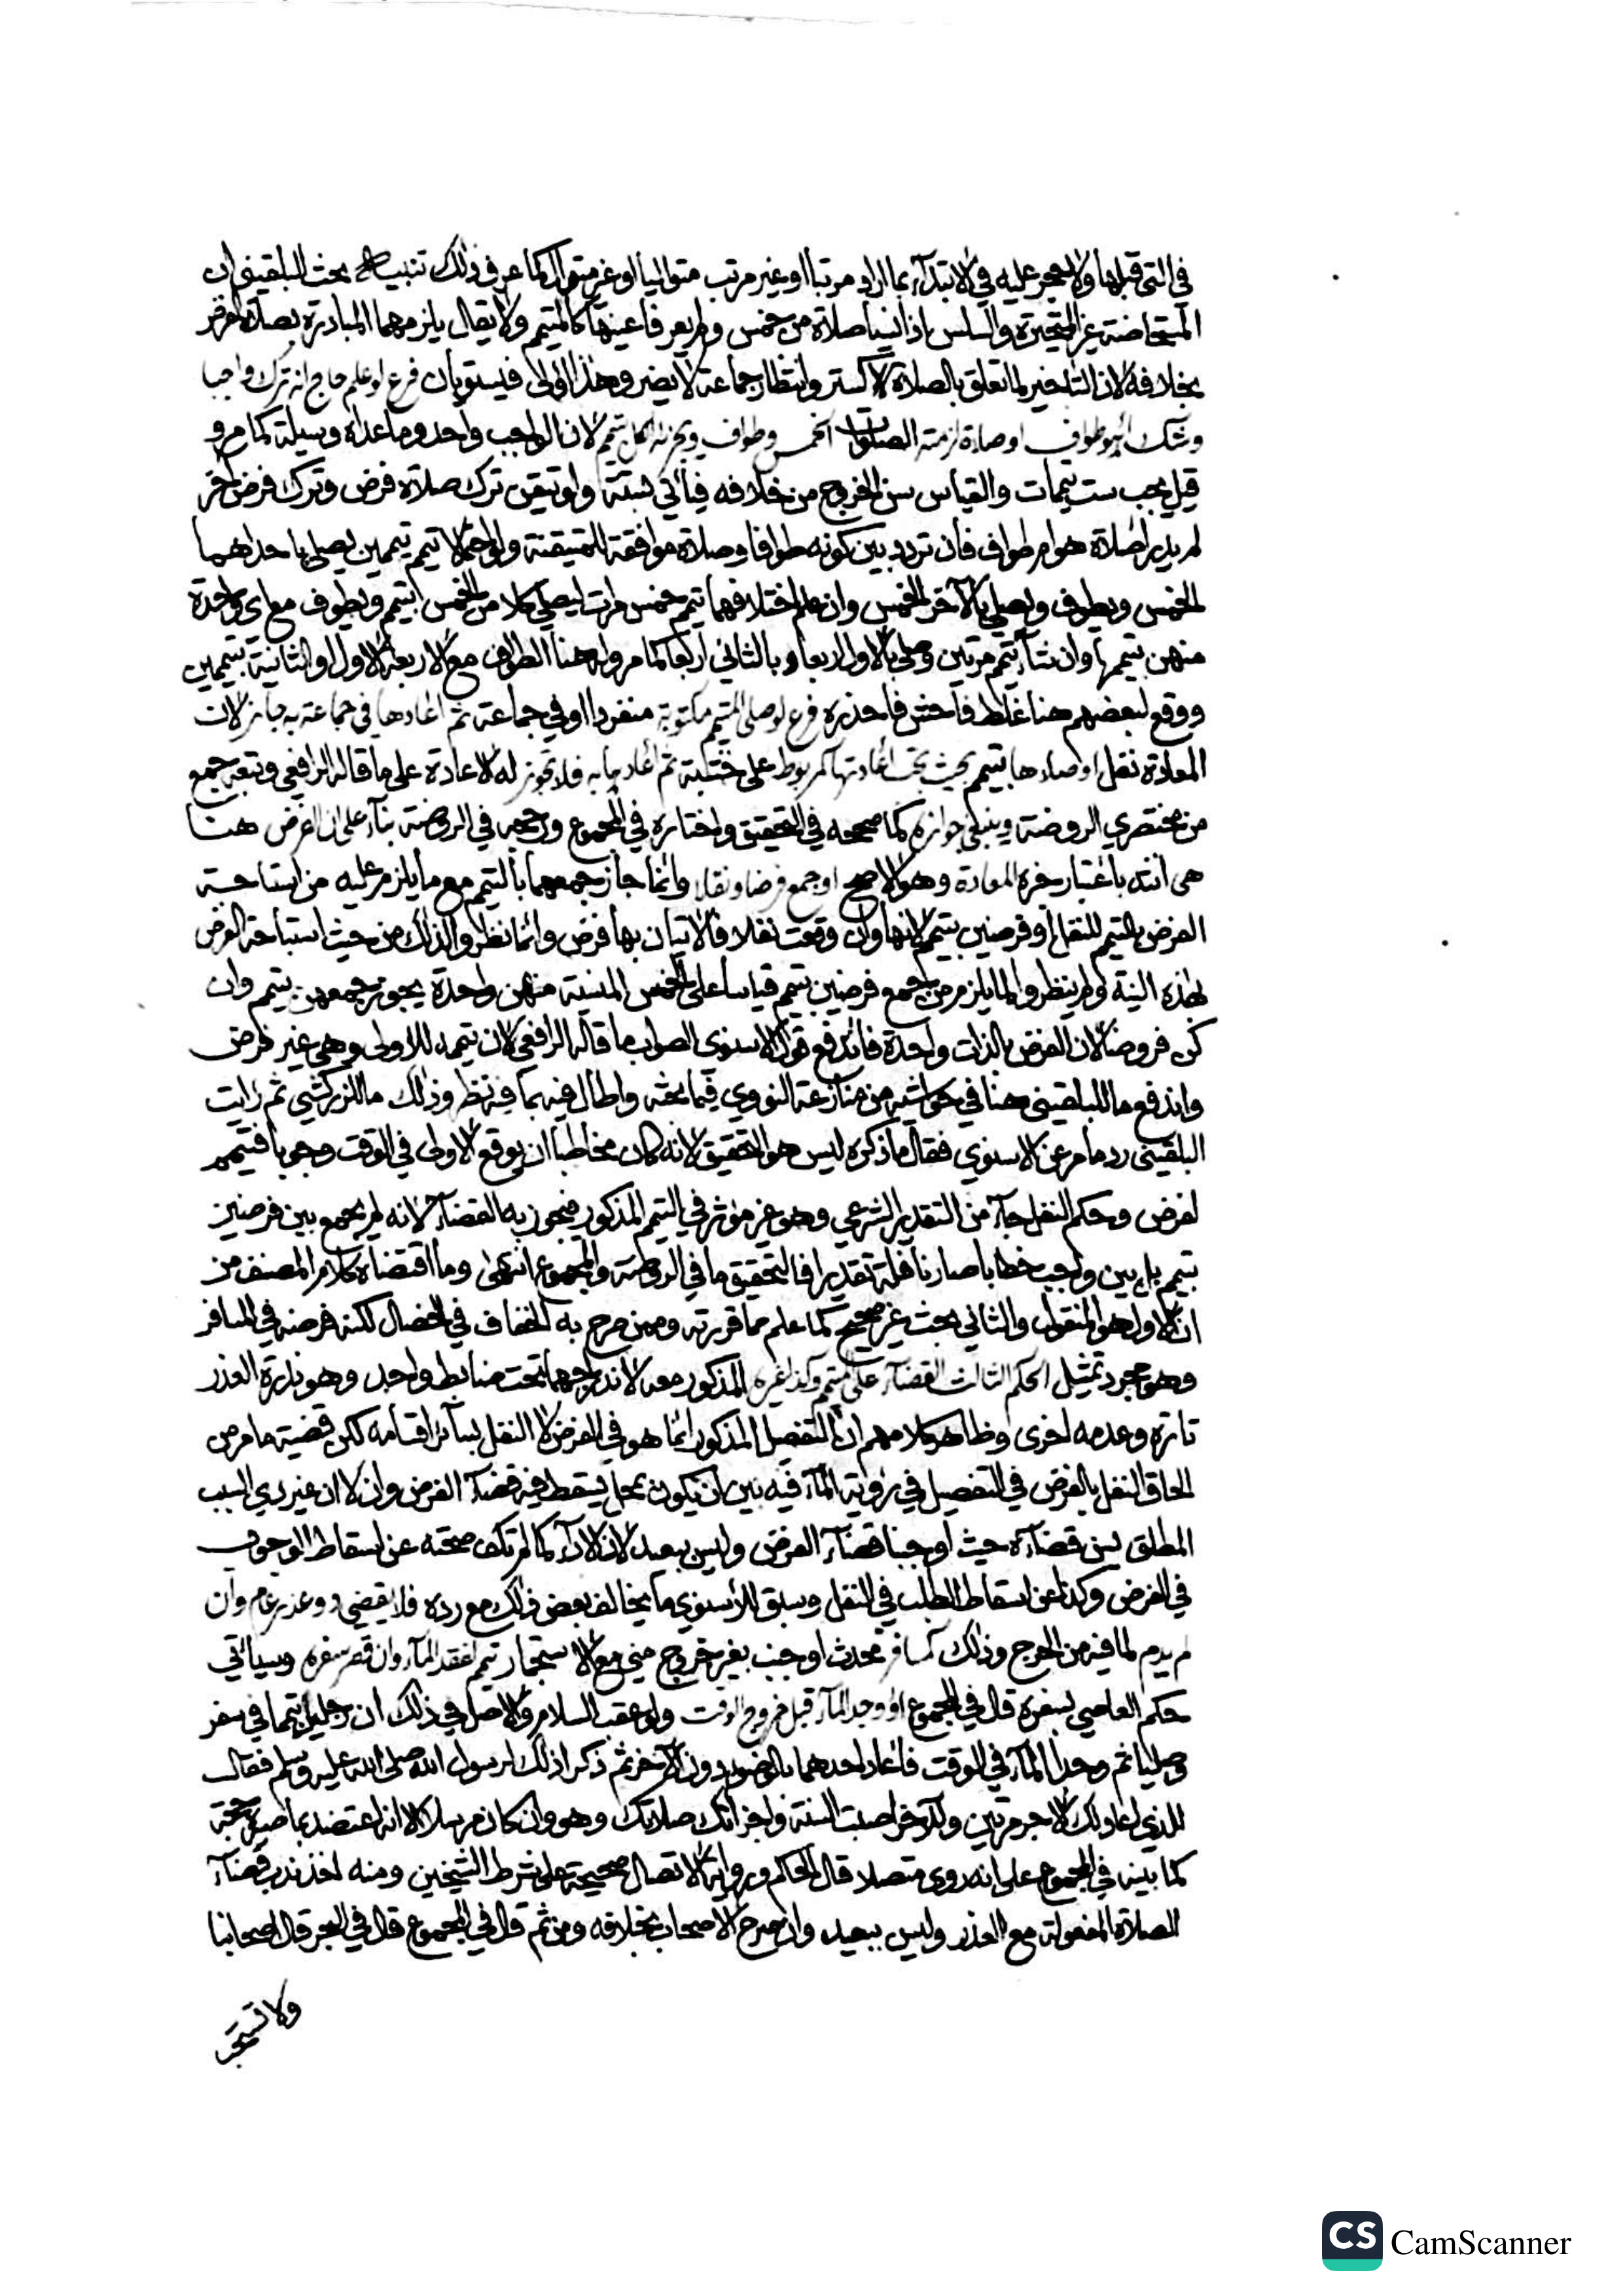 في التي قبلها ولا يحجر عليه في الابتداء بما اراد مرتبا او غير مرتب متواليا او غير متوال كما عرف ذلك تنبيه بحث البلقيني ان
المستحاضة غير المتحيرة والسلس اذا نسيا صلاة من خمس ولم يعرفا عينها كالمتيمم ولا يقال يلزمهما المبادرة بصلاة الفرض
بخلافه لان التاخير لما تعلق بالصلاة كستر وانتظار جماعة لا يضر وهذا اولى فيستويان فرع لو علم حاج انه ترك واجبا
وشك اهو طواف او صلاة لزمته الصلوات الخمس وطواف ويجزئه لكل تيمم لان الواجب واحد وما عداه وسيلة كما مر و
قيل يجب ست تيممات والقياس سن الخروج من خلافه فياتي بستة ولو تيقن ترك صلاة فرض وترك فرض اخر
لم يدر اصلاة هو ام طواف فان تردد بين كونه طوافا وصلاة موافقة للمتيقنة ولو احتمالا تيمم تيممين يصلي باحدهما
الخمس ويطوف ويصلي بالاخر الخمس وان علم اختلافهما تيمم خمس مرات ليصلي كلا من الخمس بتيمم ويطوف مع اي واحدة
منهن بتيممها وان شاء تيمم مرتين وصلى بالاول اربعا وبالثاني اربعا كما مر وله هنا الطواف مع الاربعة الاول او الثانية بتيممين
ووقع لبعضهم هنا غلط فاحش فاحذره فرع لو صلى المتيمم مكتوبة منفردا او في جماعة ثم اعادها في جماعة به جاز لان
المعادة نفل او صلاها بتيمم بحيث تجب اعادتها كمربوط على خشبة ثم اعادها به فلا تجوز له الاعادة على ما قاله الرافعي وتبعه جمع
من مختصري الروضة وينبغي جوازه كما صححه في التحقيق واختاره في المجموع ورجحه في الروضة بناء على ان الفرض هنا
هي انتد باعتبار مره المعادة وهو الاصح او جمع فرضا ونفلا وانما جاز جمعهما بالتيمم مع ما يلزم عليه من استباحة
الفرض بالتيمم للنفل او فرضين بتيمم لانها وان وقعت نفلا فالاتيان بها فرض وانما نظروا لذلك من حيث استباحة الفرض
بهذه النية ولم ينظروا لما يلزم من جمع فرضين بتيمم قياسا على الخمس المنسية منهن واحدة يجوز جمعهن بتيمم وان
كن فروضا لان الفرض بالذات واحدة فاندفع قول الاسنوي الصواب ما قاله الرافعي لان تيممه للاولى وهي غير فرض
واندفع ما للبلقيني هنا في حواشيه من منازعة النووي فيما بحثه واطال فيه بما فيه نظر وذلك ما للزركشي ثم رايت
البلقيني رد ما مر عن الاسنوي فقال ما ذكره ليس هو التحقيق لانه كان مخاطبا ان يوقع الاولى في الوقت وجوبا فتيممه
لفرض وحكم النفل جاء من التقدير الشرعي وهو غير مؤثر في التيمم المذكور فيجوز به القضاء لانه لم يجمع بين فرضين
بتيمم بل بين واجب خطابا صار نافلة تقديرا فالتحقيق ما في الروضة والمجموع انتهى وما اقتضاه كلام المصنف من
ان الاول هو المنقول والثاني بحث غير صحيح كما علم مما قررته وممن صرح به الخفاف في الخصال لكنه فرضه في المسافر
وهو مجرد تمثيل الحكم الثالث القضاء على المتيمم وكذا غيره المذكور معه لاندراجهما تحت ضابط واحد وهو ندرة العذر
تارة وعدمه اخرى وظاهر كلامهم ان التفصيل المذكور انما هو في الفرض لا النفل بسائر اقسامه لكن قضية ما مر من
الحاق النفل بالفرض في التفصيل في رؤية الماء فيه بين ان يكون بمحل يسقط فيه قضاء الفرض وان لا ان غير ذي السبب
المطلق يسن قضاءه حيث اوجبنا قضاء الفرض وليس ببعيد لان الاداء كما لم تكف صحته عن اسقاط الوجوب
في الفرض وكذا عن اسقاط الطلب في النفل وسبق للاسنوي ما يخالف بعض ذلك مع رده فلا يقضي ذو عذر عام وان
لم يدم لما فيه من الحرج وذلك كمسافر محدث او جنب بغير خروج مني مع الاستجمار تيمم لفقد الماء وان قصر سفره وسياتي
حكم العاصي بسفره قال في المجموع او وجد الماء قبل خروج الوقت ولو عقب السلام والاصل في ذلك ان رجلين تيمما في سفر
وصليا ثم وجدا الماء في الوقت فاعاد احدهما بالوضوء دون الاخر ثم ذكرا ذلك لرسول الله صلى الله عليه وسلم فقال
للذي اعاد لك الاجر مرتين وللاخر اصبت السنة واجزاتك صلاتك وهو وان كان مرسلا الا انه اعتضد بما صيره حجة
كما بينه في المجموع على انه روي متصلا قال الحاكم ورواية الاتصال صحيحة على شرط الشيخين ومنه اخذ ندب قضاء
الصلاة المفعولة مع العذر وليس ببعيد وان صرح الاصحاب بخلافه ومن ثم قال في المجموع قال في البحر قال اصحابنا
ولا تستحب
CS CamScanner